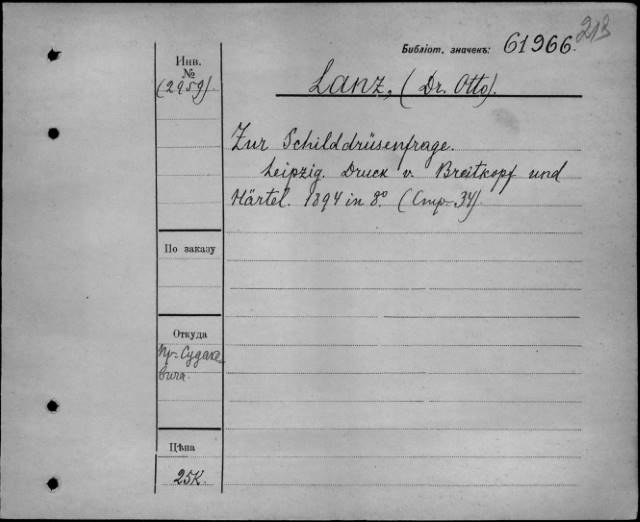 213
Библіот. значекъ: 61966.
Инв.
№
(2959)
Lanz, (Dr. Otto).
Zur Schilddrüsenfrage.
Leipzig. Druck v. Breitkopf und
Härtel. 1894 in 8° (Стр. 34)
По заказу
Откуда
Пр. Судаке
вича
Цѣна
25к.